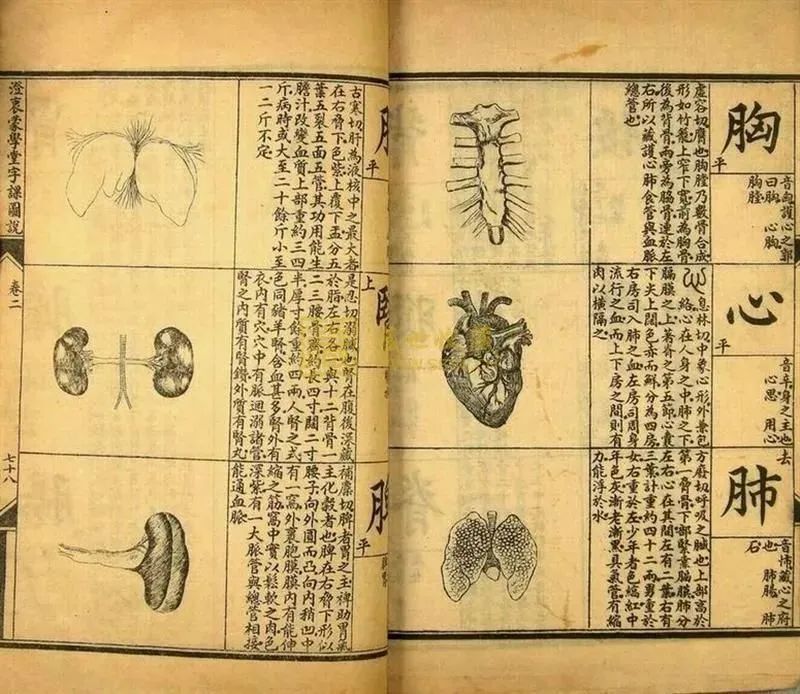 胸
平
音匈護心之郭
曰胸 心胸
胸膛
虛容切膺也胸膛乃數骨合成
形如竹籠上窄下寬前為胸骨
後為背骨兩旁為脇骨連於左
右所以藏護心肺食管與血脈
總管也
心
平
音辛身之主也
心思 用心
息林切中象心形外兼包
絡心在人身之中肺之下
膈膜之上者脊之第五節心囊
下尖上闊色赤而鮮分為四房
右房司入肺之血左房司周身
流行之血而上下房之間則有
肉以橫隔之
去
肺
音怖藏心之府
也 肺腸 肺
石
方廢切呼吸之臟也上部高於
第一脊骨下部緊靠膈膜肺分
左右心在其間左有二葉右有
三葉計重約四十二兩男重於
女右重於左少年者色縞紅中
年色灰漸老漸黑具氣管有縮
力能浮於水
平
古寒切肝為液核中之最大者
在右脅下色紫上覆下盂分五
葉五裂五面五管其功用能生
膽汁改變血質上部重約三四
斤病時或大至二十餘斤小至
一二斤不定
上
是忍切溺臟也腎在腹後深藏
於脂左右各一與十二背骨一
二三腰骨齊約長四寸闊二寸
半厚寸餘重約四兩人腎之式
色同豬羊腎含血甚多腎外有
衣內有穴穴中有脈迴溺諸管
腎之內質有腎鑽外質有腎丸
平
補靡切脾者胃之主裨助胃氣
主化穀者也脾在右脅下形似
腰子向外圓而凸向內稍凹中
有一窩外裹胞膜膜內有能伸
縮之筋窩中實以鬆軟之肉色
深紫有一大脈管與總管相接
能通血脈
澄衷蒙學堂字課圖說
卷二
七十八